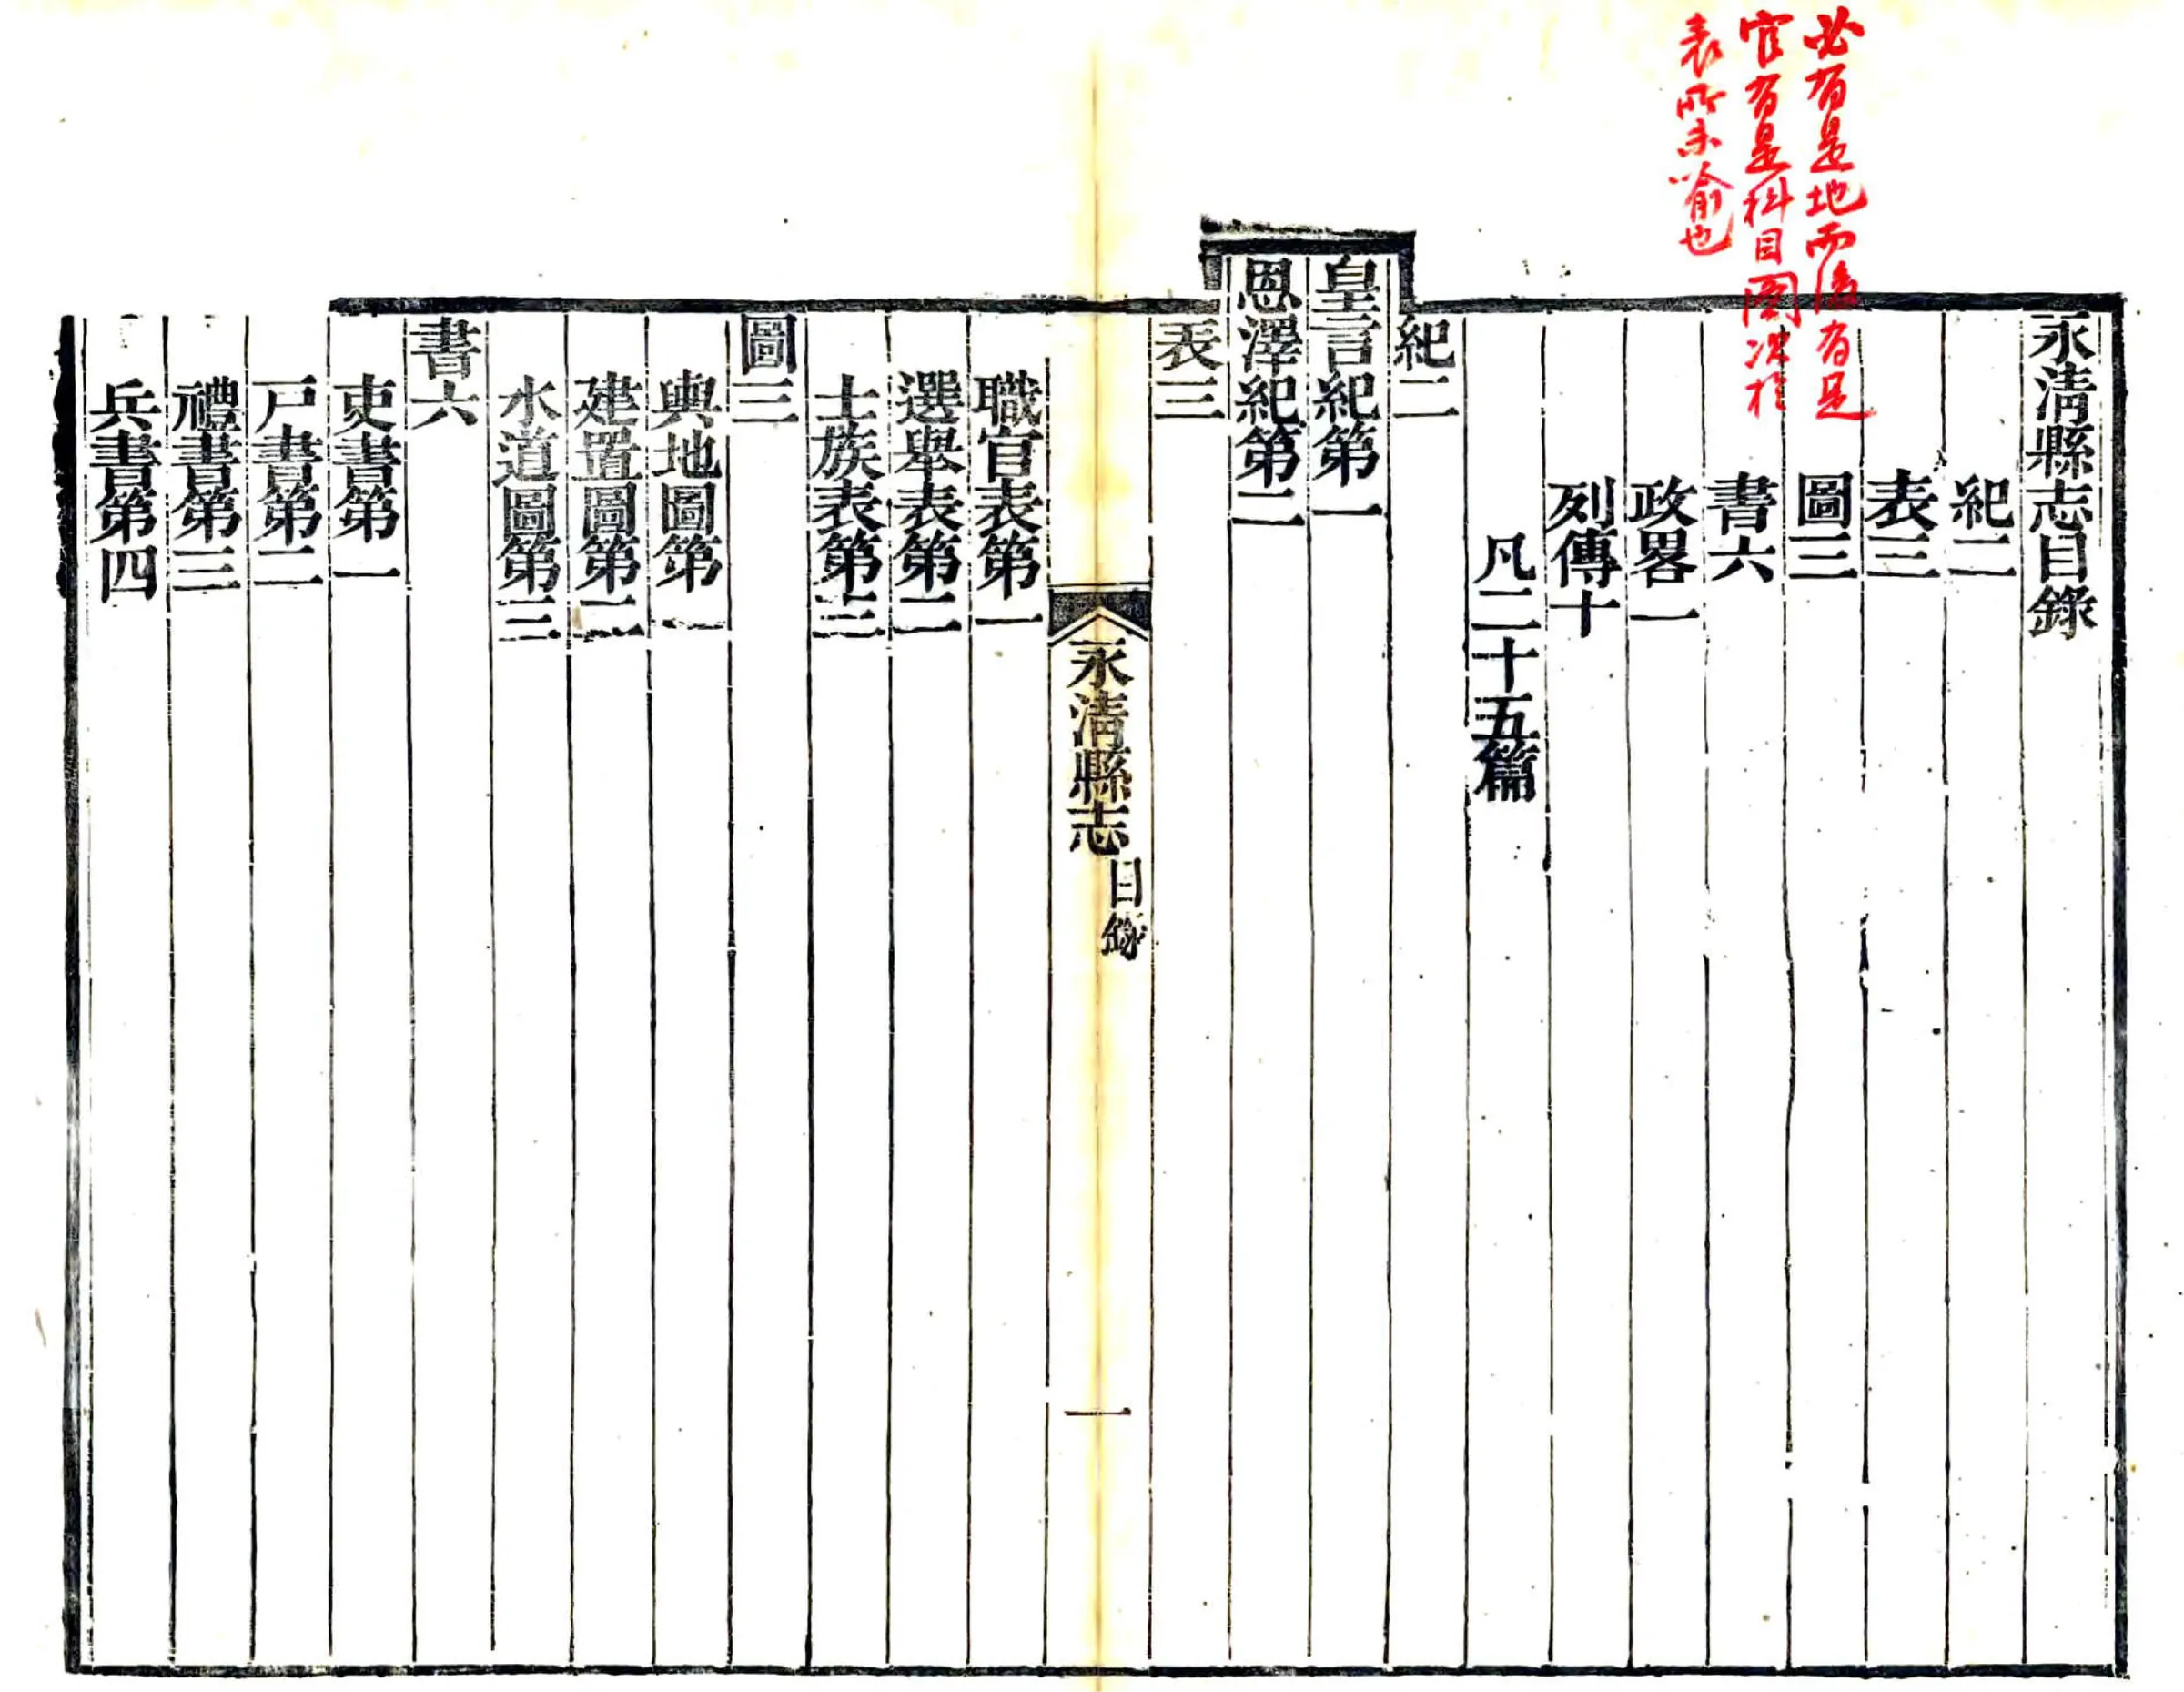 必有是地而后有是
官有是科目圖次於
表所未喻也
永清縣志目錄
紀二
表三
圖三
書六
政畧一
列傳十
凡二十五篇
紀二
皇言紀第一
恩澤紀第二
表三
永清縣志
目錄
一
職官表第一
選舉表第二
士族表第三
圖三
輿地圖第一
建置圖第二
水道圖第三
書六
吏書第一
戸書第二
禮書第三
兵書第四